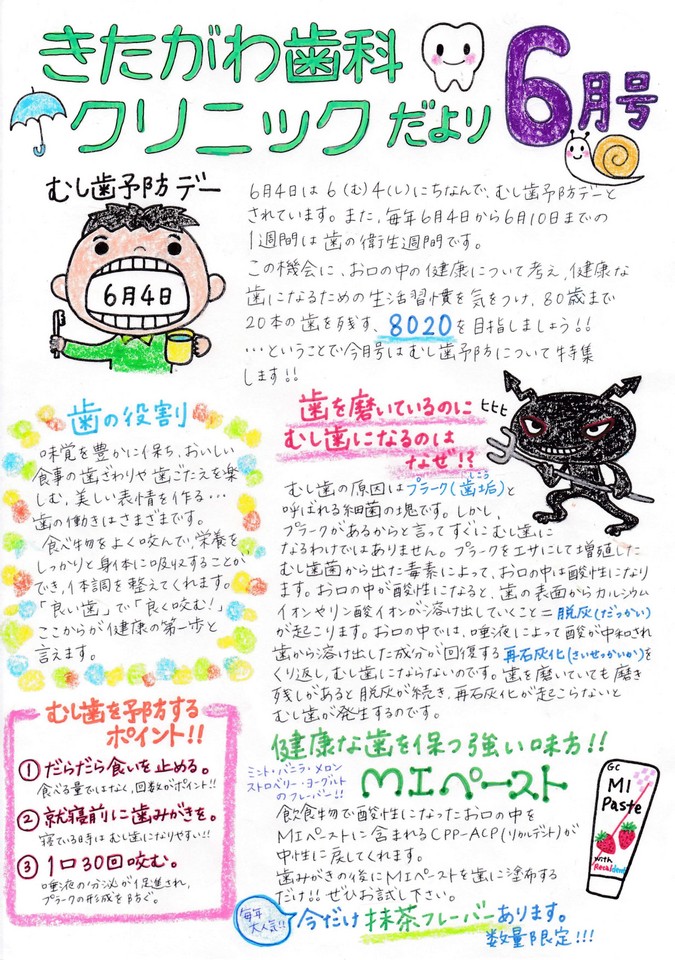 きたがわ歯科
クリニックだより
6月号
むし歯予防デー
6月4日
6月4日は6(む)4(し)にちなんで、むし歯予防デーと
されています。また、毎年6月4日から6月10日までの
1週間は歯の衛生週間です。
この機会に、お口の中の健康について考え、健康な
歯になるための生活習慣を気をつけ、80歳まで
20本の歯を残す、8020を目指しましょう!!
…ということで今月号はむし歯予防について特集
します!!
歯の役割
味覚を豊かに保ち、おいしい
食事の歯ざわりや歯ごたえを楽
しむ、美しい表情を作る…
歯の働きはさまざまです。
食べ物をよく咬んで、栄養を
しっかりと身体に吸収することが
でき、体調を整えてくれます。
「良い歯」で「良く咬む!」
ここからが健康の第一歩と
言えます。
歯を磨いているのに
むし歯になるのは
なぜ!?
ヒヒヒ
むし歯の原因はプラーク(歯垢)と
しこう
呼ばれる細菌の塊です。しかし、
プラークがあるからと言ってすぐにむし歯に
なるわけではありません。プラークをエサにして増殖した
むし歯菌から出た毒素によって、お口の中は酸性になり
ます。お口の中が酸性になると、歯の表面からカルシウム
イオンやリン酸イオンが溶け出していくこと=脱灰(だっかい)
が起こります。お口の中では、唾液によって酸が中和され
歯から溶け出した成分が回復する再石灰化(さいせっかいか)を
くり返し、むし歯にならないのです。歯を磨いていても磨き
残しがあると脱灰が続き、再石灰化が起こらないと
むし歯が発生するのです。
むし歯を予防する
ポイント!!
①だらだら食いを止める。
食べる量ではなく、回数がポイント!!
②就寝前に歯みがきを。
寝ている時はむし歯になりやすい!!
③1口30回咬む。
唾液の分泌が促進され、
プラークの形成を防ぐ。
健康な歯を保つ強い味方!!
ミント・バニラ・メロン
ストロベリー・ヨーグルト
のフレーバー!!
MIペースト
飲食物で酸性になったお口の中を
MIペーストに含まれるCPP-ACP(リカルデント)が
中性に戻してくれます。
歯みがきの後にMIペーストを歯に塗布する
だけ!!ぜひお試し下さい。
GC
MI
Paste
with
Recaldent
毎年
大人気!!
今だけ抹茶フレーバーあります。
数量限定!!!